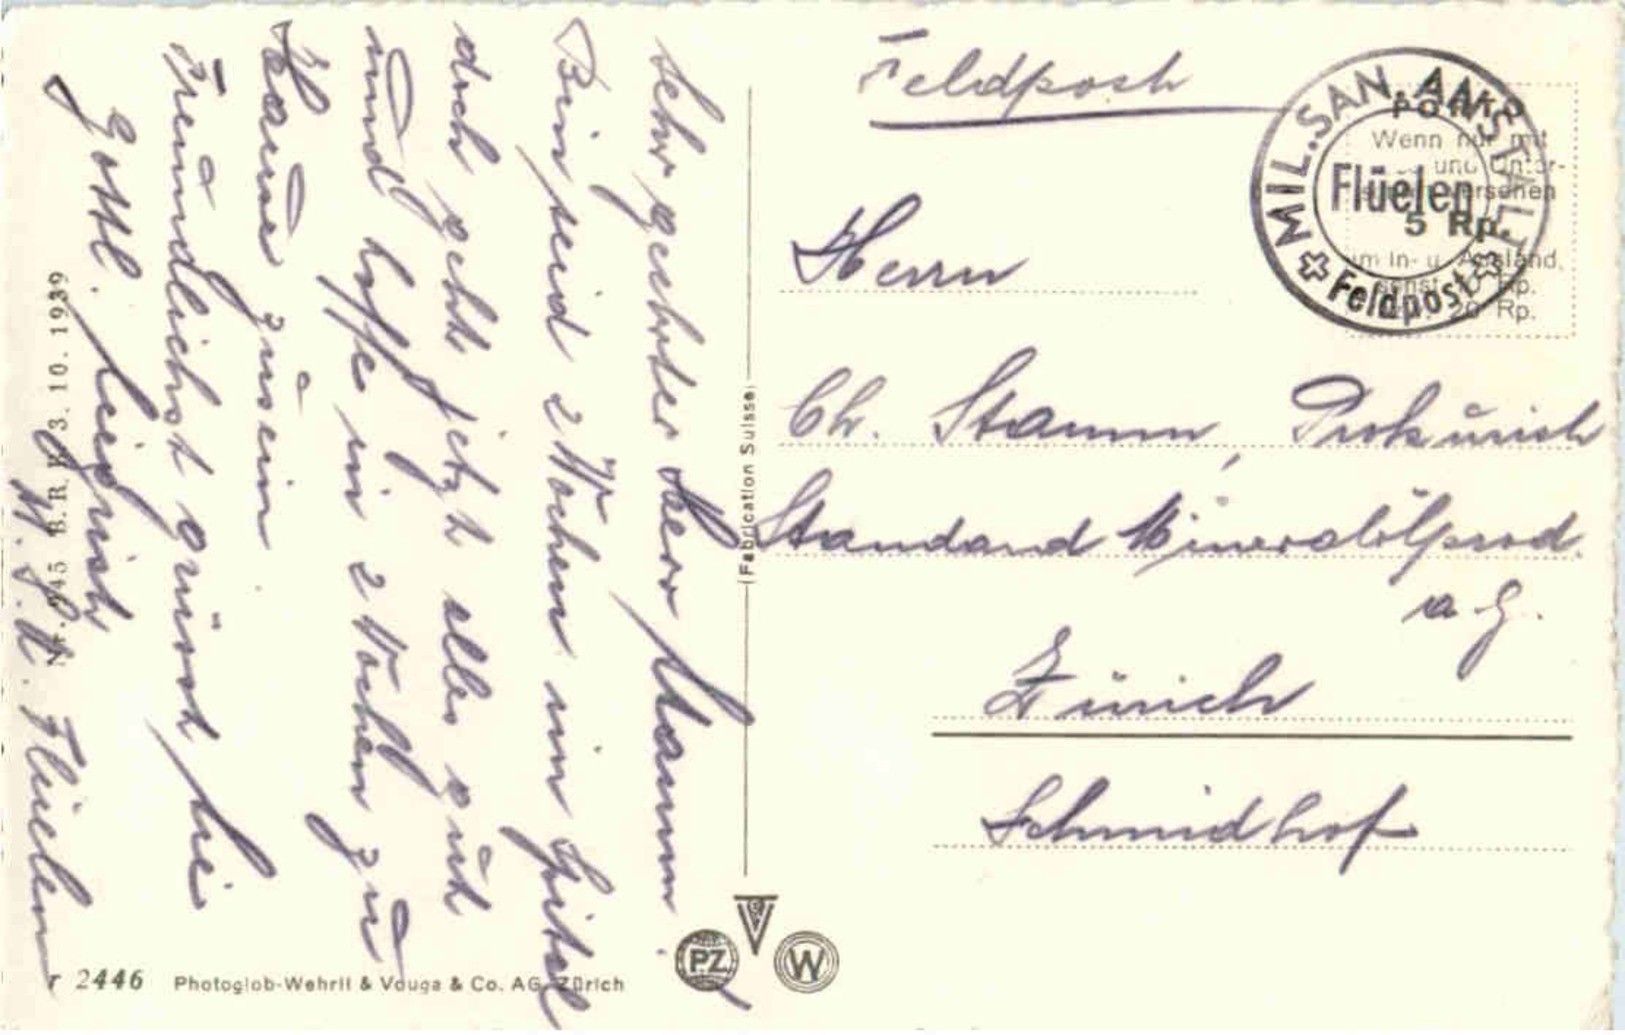 Feldpost
MIL. SAN. ANSTALT
Flüelen
Feldpost
PORTO
Wenn nur mit
und Unter-
5 Rp.
im In- u. Ausland,
sonst Rp.
20 Rp.
Herrn
Ch. Stamm, Prokurist
Standard Mineralölprod.
A. G.
Zürich
Schmidhof
Sehr geehrter Herr Stamm.
Bin seid 2 Wochen im Spital
doch geht jetzt alles gut
und hoffe in 2 Wochen zu
Hause zusein
Freundlichst grüsst Sie
Gottl. Siegrist
M.S.A. Flüelen
(Fabrication Suisse)
B.R.B. 3. 10. 1939
2446 Photoglob-Wehrli & Vouga & Co. AG. Zürich
PZ
V
W